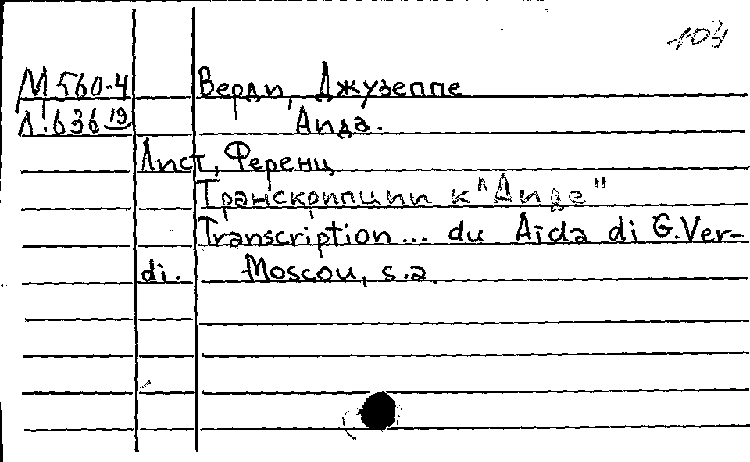 104
М 560-4 Верди, Джузеппе
Л.636 19 Аида.
Лист, Ференц
Транскрипции к "Аиде"
Transcription... du Aïda di G.Ver-
di. Moscou, s.a.